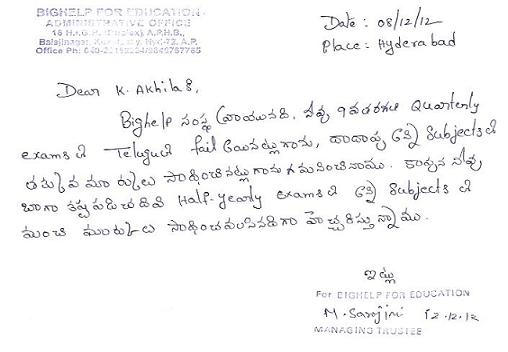 BIGHELP FOR EDUCATION
ADMINISTRATIVE OFFICE
Date : 08/12/12
Place : Hyderabad
Dear K. Akhila S,
Bighelp సంస్థ వ్రాయునది, నీవు 9వ తరగతి Quarterly
exams లో Teluguలో fail అయినట్లుగాను, దాదాపు అన్ని Subjects లో
తక్కువ మార్కులు సాధించినట్లుగాను గమనించినాము. కావున నీవు
బాగా కష్టపడి చదివి Half-yearly exams లో అన్ని Subjects లో
మంచి మార్కులు సాధించవలసినదిగా హెచ్చరిస్తున్నాము.
ఇట్లు
For BIGHELP FOR EDUCATION
M. Sarojini 12.12.12
MANAGING TRUSTEE